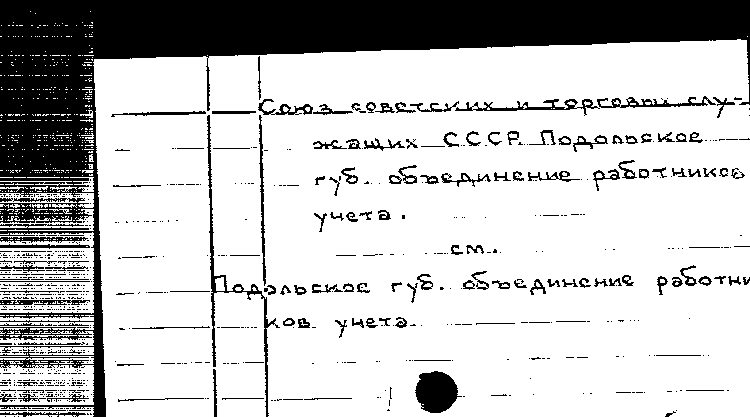 Союз советских и торговых слу-
жащих СССР. Подольское
губ. объединение работников
учета.
см.
Подольское губ. объединение работни
ков учета.